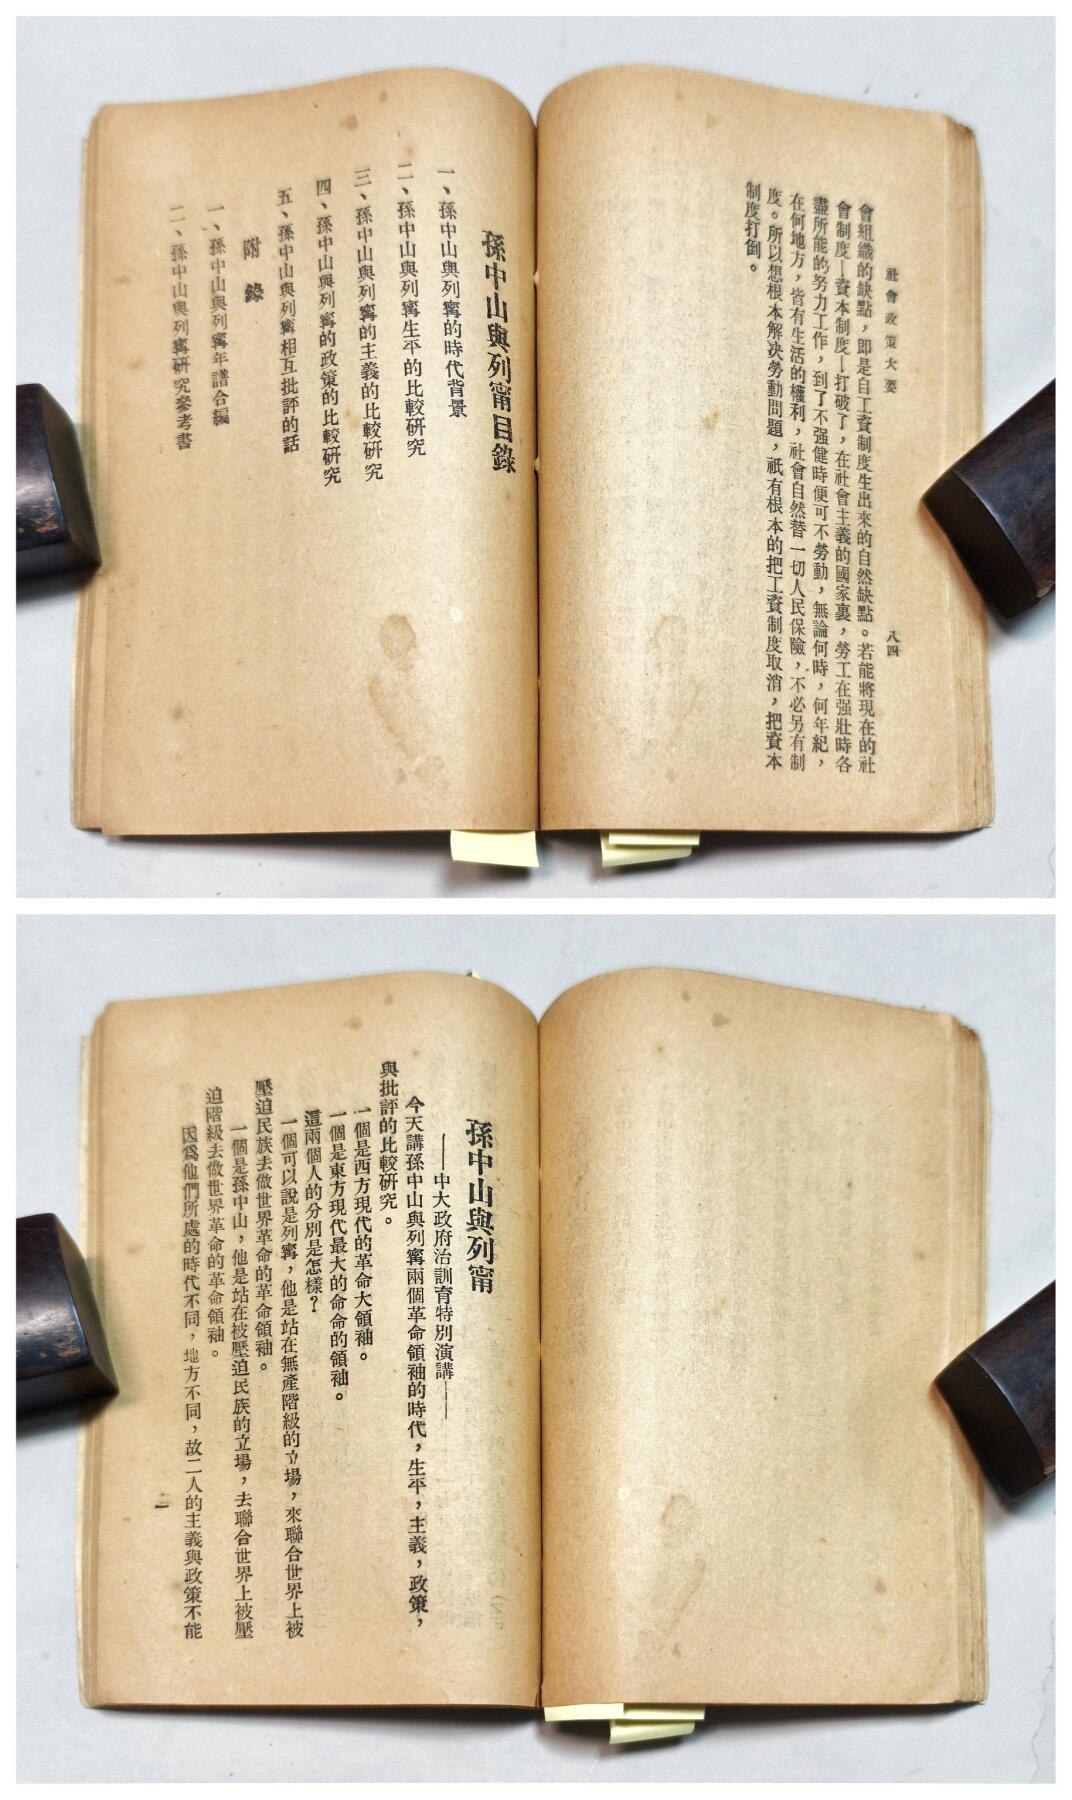 社會政策大要
八四
會組織的缺點，即是自工資制度生出來的自然缺點。若能將現在的社
會制度—資本制度—打破了，在社會主義的國家裏，勞工在强壯時各
盡所能的努力工作，到了不强健時便可不勞動，無論何時，何年紀，
在何地方，皆有生活的權利，社會自然替一切人民保險，不必另有制
度。所以想根本解决勞動問題，祇有根本的把工資制度取消，把資本
制度打倒。
孫中山與列甯目錄
一、孫中山與列寗的時代背景
二、孫中山與列寗生平的比較研究
三、孫中山與列寗的主義的比較研究
四、孫中山與列寗的政策的比較研究
五、孫中山與列寗相互批評的話
附錄
一、孫中山與列寗年譜合編
二、孫中山與列寗研究參考書
孫中山與列甯
——中大政府治訓育特別演講——
今天講孫中山與列寗兩個革命領袖的時代，生平，主義，政策，
與批評的比較研究。
一個是西方現代的革命大領袖。
一個是東方現代最大的命命的領袖。
這兩個人的分別是怎樣？
一個可以說是列寗，他是站在無產階級的立場，來聯合世界上被
壓迫民族去做世界革命的革命領袖。
一個是孫中山，他是站在被壓迫民族的立場，去聯合世界上被壓
迫階級去做世界革命的革命領袖。
因爲他們所處的時代不同，地方不同，故二人的主義與政策不能